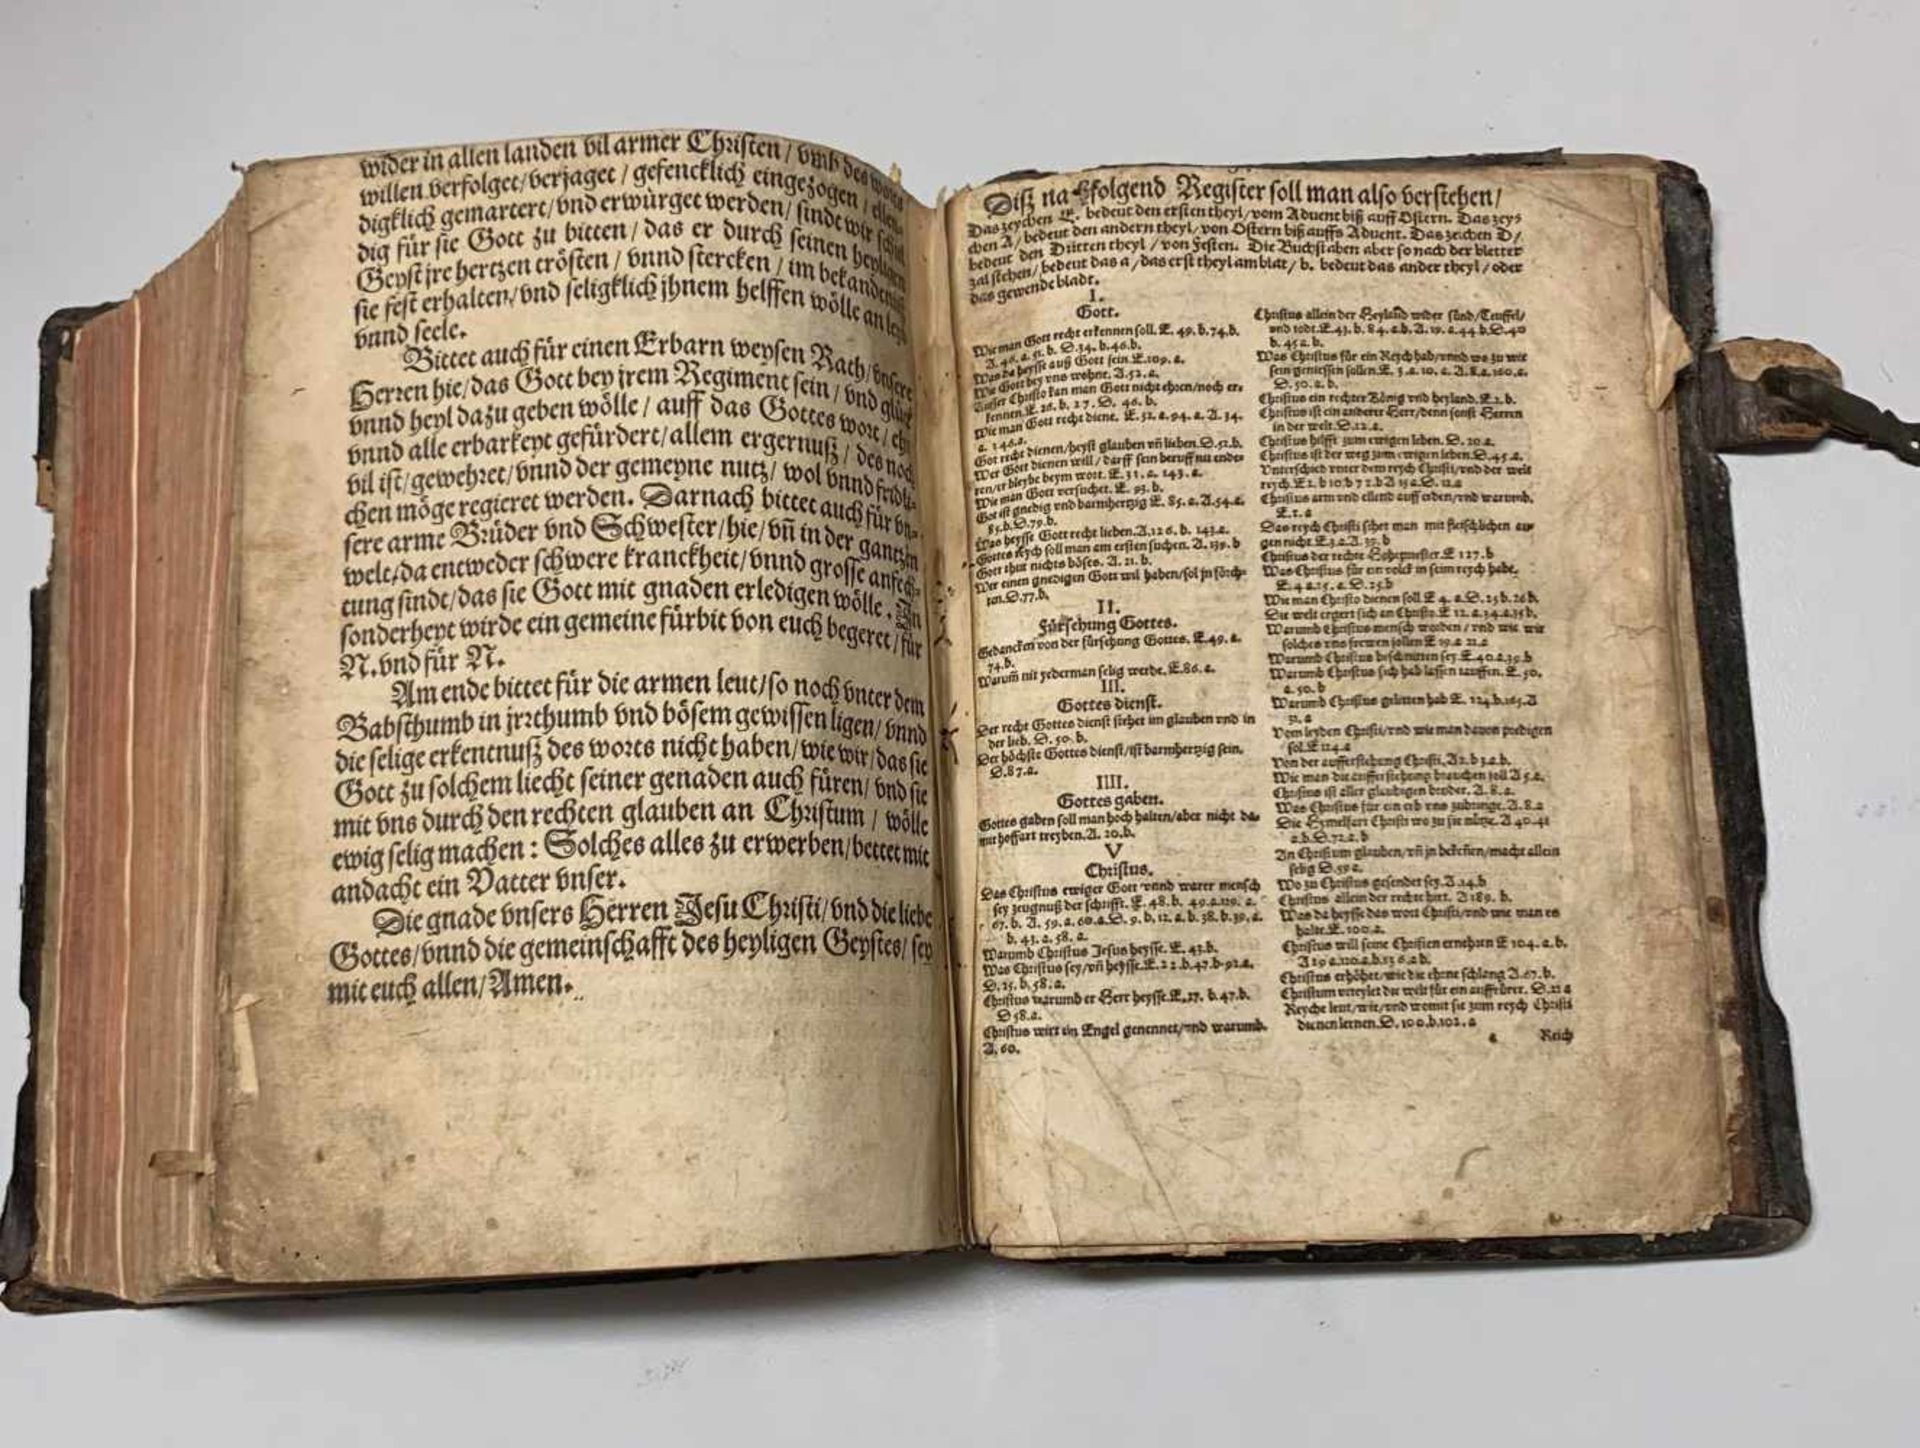 wider in allen landen vil armer Christen / vmb des worts
willen verfolget/verjaget / gefencklich eingezogen / ellen⸗
digklich gemartert/vnd erwürget werden/ sindt wir schul
dig für sie Gott zu bitten / das er durch seinen heyligen
Geyst jre hertzen trösten / vnnd stercken / im bekandtnuß
sie fest erhalten/vnd seligklich jhnem helffen wölle an leyb
vnnd seele.
Bittet auch für einen Erbarn weysen Rath/vnsere
Herren hie/das Gott bey jrem Regiment sein / vnd glück
vnnd heyl dazu geben wölle / auff das Gottes wort / ehr
vnnd alle erbarkeyt gefürdert/allem ergernuß / des noch
vil ist/gewehret/vnnd der gemeyne nutz/ wol vnnd fridli⸗
chen möge regieret werden. Darnach bittet auch für vn⸗
sere arme Brüder vnd Schwester/hie/vñ in der gantzen
welt/da entweder schwere kranckheit/vnnd grosse anfech⸗
tung sindt/das sie Gott mit gnaden erledigen wölle. In
sonderheyt wirde ein gemeine fürbit von euch begeret/für
N. vnd für N.
Am ende bittet für die armen leut/so noch vnter dem
Babsthumb in jrrthumb vnd bösem gewissen ligen/vnnd
die selige erkentnuß des worts nicht haben/wie wir/das sie
Gott zu solchem liecht seiner genaden auch füren/vnd sie
mit vns durch den rechten glauben an Christum / wölle
ewig selig machen: Solches alles zu erwerben/bettet mit
andacht ein Vatter vnser.
Die gnade vnsers Herren Jesu Christi/vnd die liebe
Gottes/vnnd die gemeinschafft des heyligen Geystes/sey
mit euch allen/Amen.
Diß nachfolgend Register soll man also verstehen/
Das zeychen E. bedeut den ersten theyl/vom Advent biß auff Ostern. Das zey⸗
chen A/bedeut den andern theyl/von Ostern biß auffs Advent. Das zeichen D/
bedeut den Dritten theyl / von Festen. Die Buchstaben aber so nach der bletter
zal stehen/bedeut das a/das erst theyl am blat/b. bedeut das ander theyl/oder
das gewende bladt.
I.
Gott.
Wie man Gott recht erkennen soll. E. 49. b. 74. b.
A. 46. a. 51. b. D. 34. b. 46. b.
Was da heysse auß Gott sein. E. 109. a.
Wie Gott bey vns wohne. A. 52. a.
Ausser Christo kan man Gott nicht ehren/noch er⸗
kennen. E. 26. b. 27. D. 46. b.
Wie man Gott recht diene. E. 52. a. 94. a. A. 34.
a. 146. a.
Got recht dienen/heyst glauben vñ lieben. D. 52. b.
Wer Gott dienen will/ darff sein beruff nit ende⸗
ren/er bleybe beym wort. E. 31. a. 143. a.
Wie man Gott versuchet. E. 93. b.
Got ist gnedig vnd barmhertzig E. 85. a. A. 54. a.
85. b. D. 79. b.
Was heysse Gott recht lieben. A. 126. b. 142. a.
Gottes reych soll man am ersten suchen. A. 139. b
Gott thut nichts böses. A. 21. b.
Wer einen gnedigen Gott wil haben/sol jn förch⸗
ten. D. 77. b.
II.
Fürsehung Gottes.
Gedancken von der fürsehung Gottes. E. 49. a.
74. b.
Warum̃ nit yederman selig werde. E. 86. a.
III.
Gottes dienst.
Der recht Gottes dienst stehet im glauben vnd in
der lieb. D. 50. b.
Der höchste Gottes dienst/ist barmhertzig sein.
D. 87. a.
IIII.
Gottes gaben.
Gottes gaben soll man hoch halten/aber nicht da⸗
mit hoffart treyben. A. 20. b.
V
Christus.
Das Christus ewiger Gott vnnd warer mensch
sey zeugnuß der schrifft. E. 48. b. 49. a. 129. a.
67. b. A. 59. a. 60. a. D. 9. b. 12. a. b. 38. b. 39. a.
b. 43. a. 58. a.
Warumb Christus Jesus heysse. E. 43. b.
Was Christus sey/vñ heysse. E. 22. b. 47. b. 92. a.
D. 15. b. 58. a.
Christus warumb er Herr heysse. E. 27. b. 47. b.
D 58. a.
Christus wirt ein Engel genennet/vnd warumb.
A. 60.
Christus allein der Heyland wider sünd/Teuffel/
vnd todt. E. 43. b. 84. a. b. A. 19. a. 44 b. D. 40
b. 45 a. b.
Was Christus für ein Reych hab/vnnd wo zu wir
sein geniessen sollen. E. 3. a. 10. a. A. 8. a. 160. a.
D. 50. a. b.
Christus ein rechter König vnd heyland. E 2. b.
Christus ist ein anderer Herr/denn sonst Herren
in der welt. D. 12. a.
Christus hilfft zum ewigen leben. D. 20. a.
Christus ist der weg zum ewigen leben. D. 45. a.
Vnterschied vnter dem reych Christi/vnd der welt
reych. E 2. b 10 b 7 2. b A 15 a. D. 12. a
Christus arm vnd ellend auff erden/vnd warumb.
E. 2. a
Das reych Christi sihet man mit fleischlichen au⸗
gen nicht. E 3. a. A. 39. b
Christus der rechte Hohepriester. E 127. b
Was Christus für ein volck in seim reych habe.
E. 4. a 25. a. D. 25. b
Wie man Christo dienen soll E 4. a. D. 25 b. 26 b.
Die welt ergert sich an Christo. E 12. a. 34. a. 35 b.
Warumb Christus mensch worden/vnd wie wir
solches vns frewen sollen E 19. a 21. a
Warumb Christus beschnitten sey. E 40. a 39. b
Warumb Christus sich hab lassen tauffen. E. 50.
a. 50. b
Warumb Christus gelitten hab E. 124. b. 165. A
31. a
Vom leyden Christi/vnd wie man davon predigen
sol. E 124. a
Von der aufferstehung Christi. A 2. b 3. a. b.
Wie man die aufferstehung brauchen soll A 5. a.
Christus ist aller glaubigen bruder. A. 8. a.
Was Christus für ein erb vns zubringe. A. 8. a
Die Hymelfart Christi wo zu sie nütze. A 40. 41
a. b. D. 72. a. b
An Christum glauben/vñ jn bekeñen/macht allein
selig D. 59 a.
Wo zu Christus gesendet sey. A. 14. b
Christus allein der rechte hirt. A 189. b.
Was da heysse das wort Christi/vnd wie man es
halte. E. 100. a.
Christus will seine Christen ernehren E 104. a. b.
A 19 a. 110. a. b. 136. a. b.
Christus erhöhet/wie die ehrne schlang A. 67. b.
Christum verteylet die welt für ein auffrürer. D. 11 a
Reyche leut/wie/vnd womit sie zum reych Christi
dienen lernen. D. 100. b. 102. a
a Reich